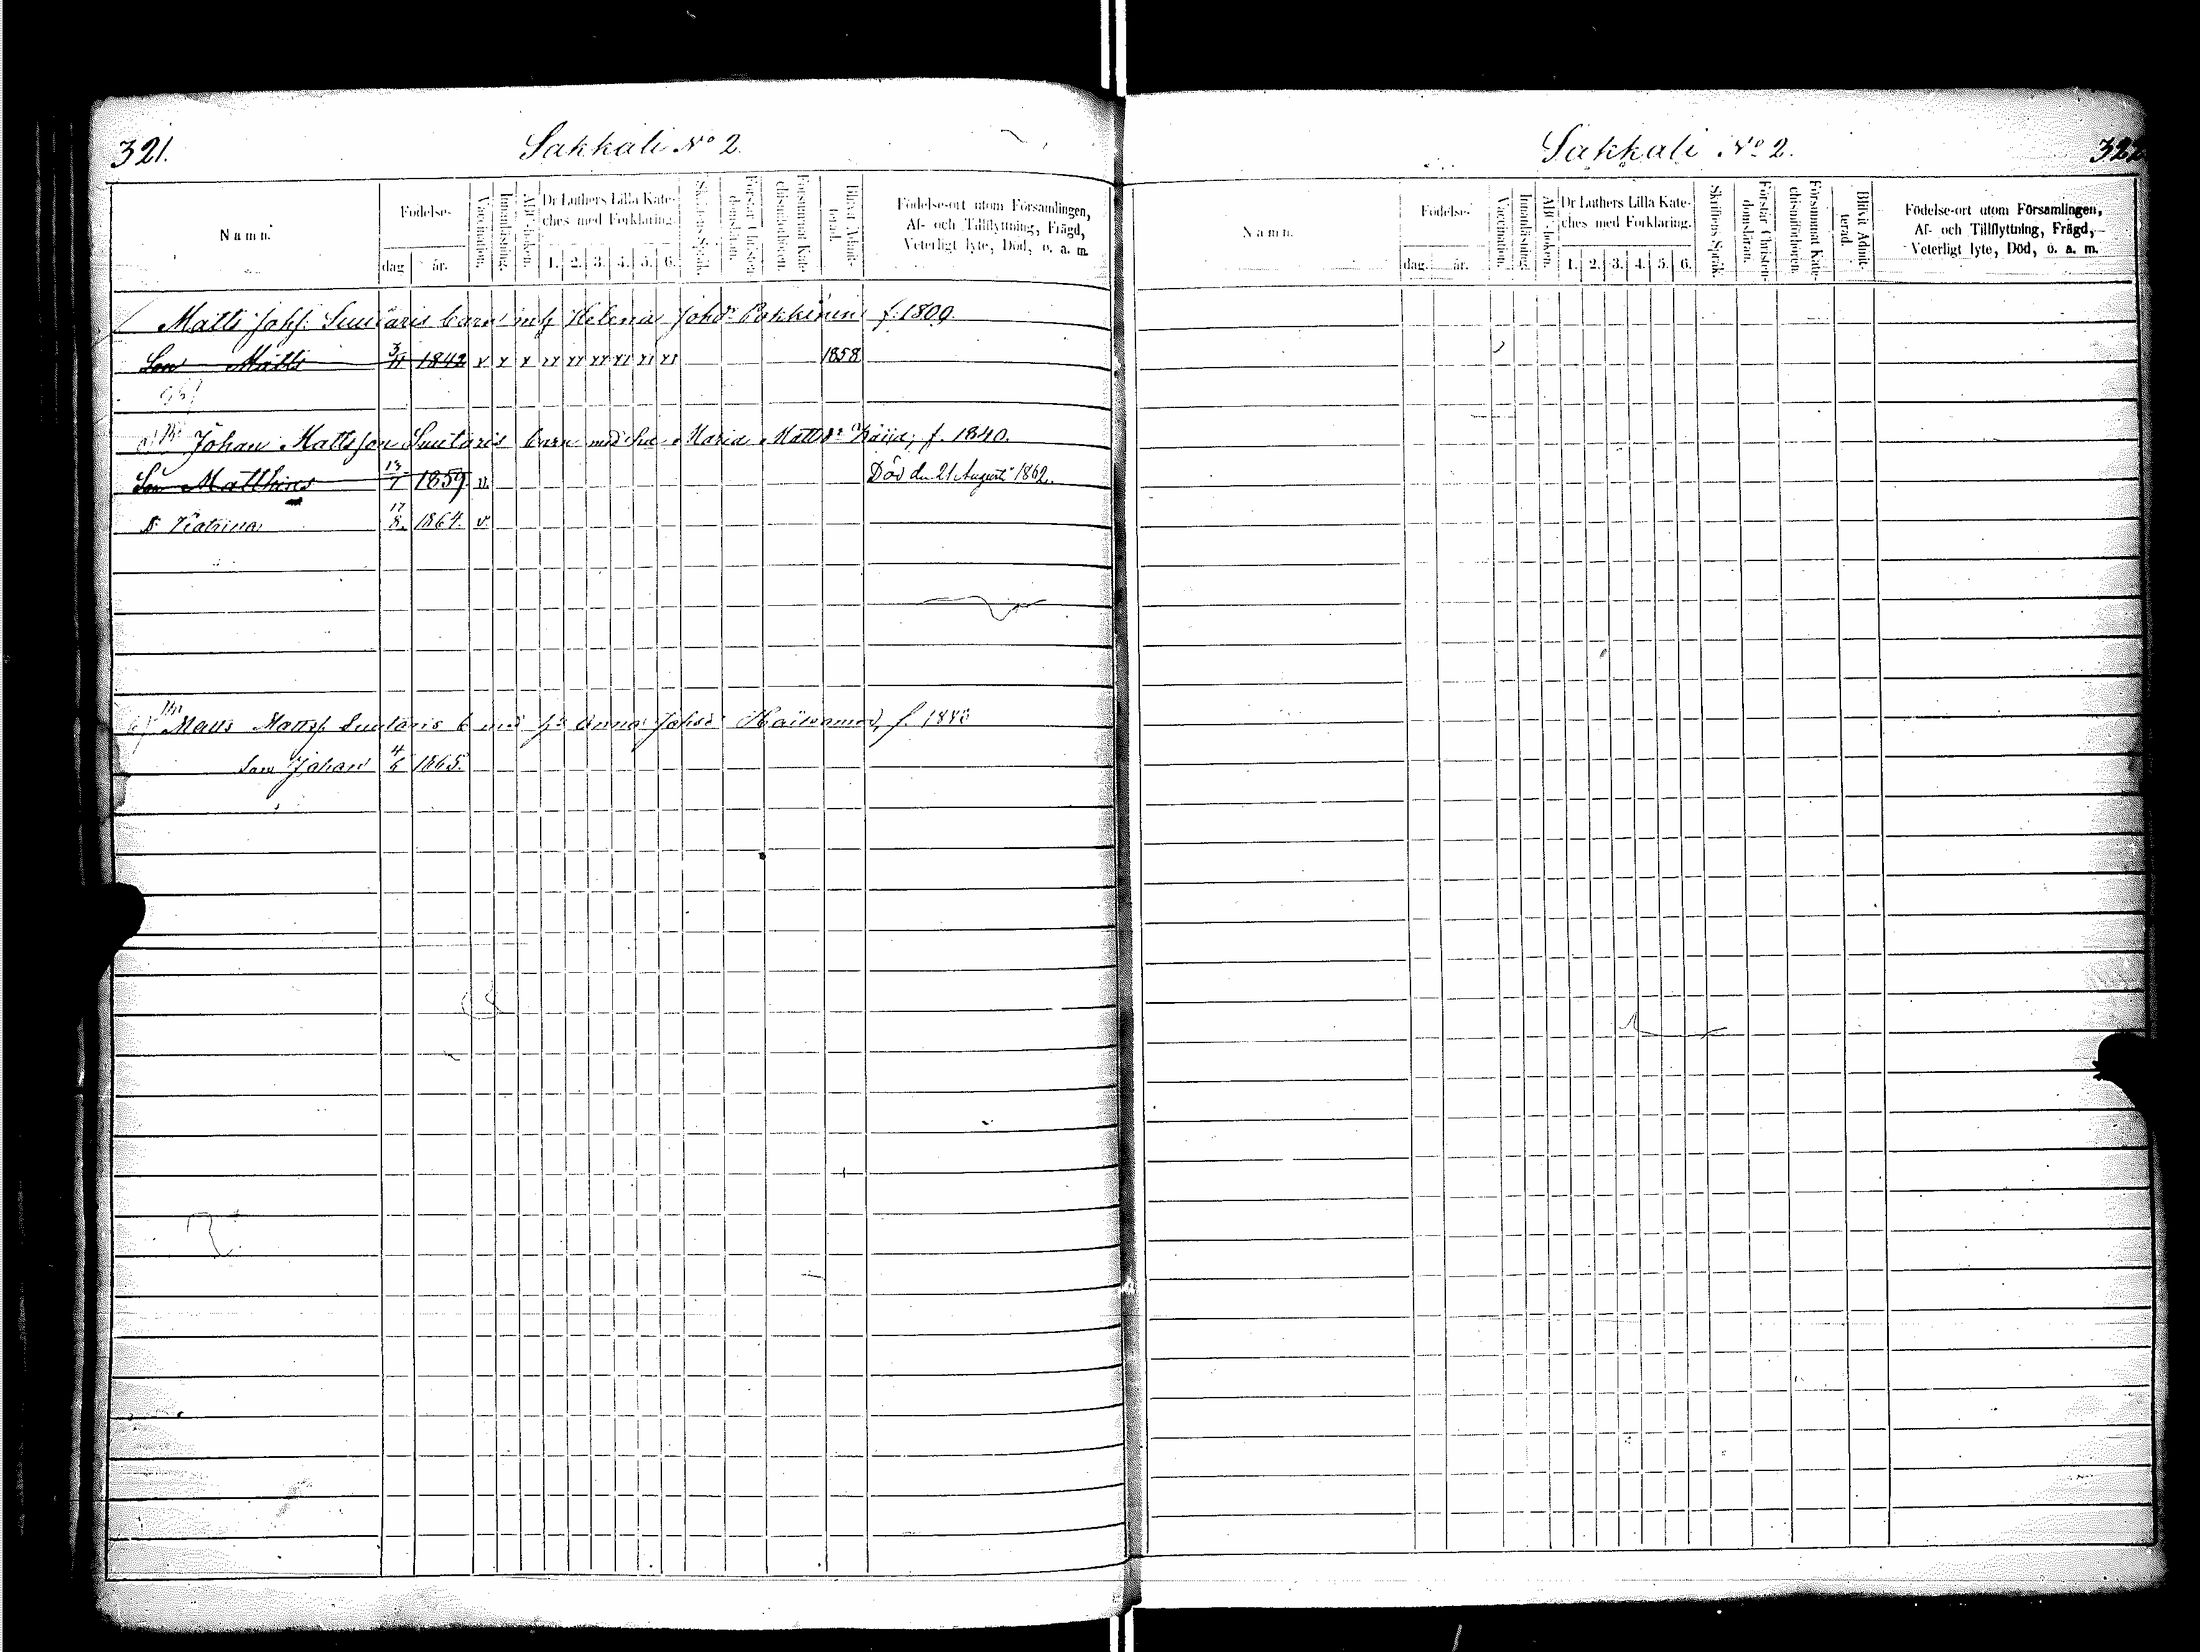 321.
Sakkali No 2.
Namn.
Födelse-
dag
år.
Vaccination.
Innanläsning.
ABC-boken.
Dr Luthers Lilla Kate-
ches med Förklaring.
1. 2. 3. 4. 5. 6.
Skriftens Språk.
Förstår Christen-
domsläran.
Försummat Kate-
chismiförhören.
Blifvit Admit-
terad.
Födelse-ort utom Församlingen,
Af- och Tillflyttning, Frägd,
Veterligt lyte, Död, o. a. m.
Matts Johss: Suutaris barn med Helena Johdr f. 1809.
Son Matts 3/11 1842 v x x xx xx xx xx xx xx 1858
Johan Mattsson Suutaris barn med hu Maria Mattsdr f. 1840.
Son Matthias 13/7 1859 v. Död den 21 Augusti 1862.
D. Katrina 17/8. 1864. v.
b) Matts Mattss. Suutaris b med hu Anna Johsdr f. 1843
Son Johan 4/6 1865.
Sakkali No 2.
322
Namn.
Födelse-
dag.
år.
Vaccination.
Innanläsning.
ABC-boken.
Dr Luthers Lilla Kate-
ches med Förklaring.
1. 2. 3. 4. 5. 6.
Skriftens Språk.
Förstår Christen-
domsläran.
Försummat Kate-
chismiförhören.
Blifvit Admit-
terad.
Födelse-ort utom Församlingen,
Af- och Tillflyttning, Frägd,
Veterligt lyte, Död, o. a. m.